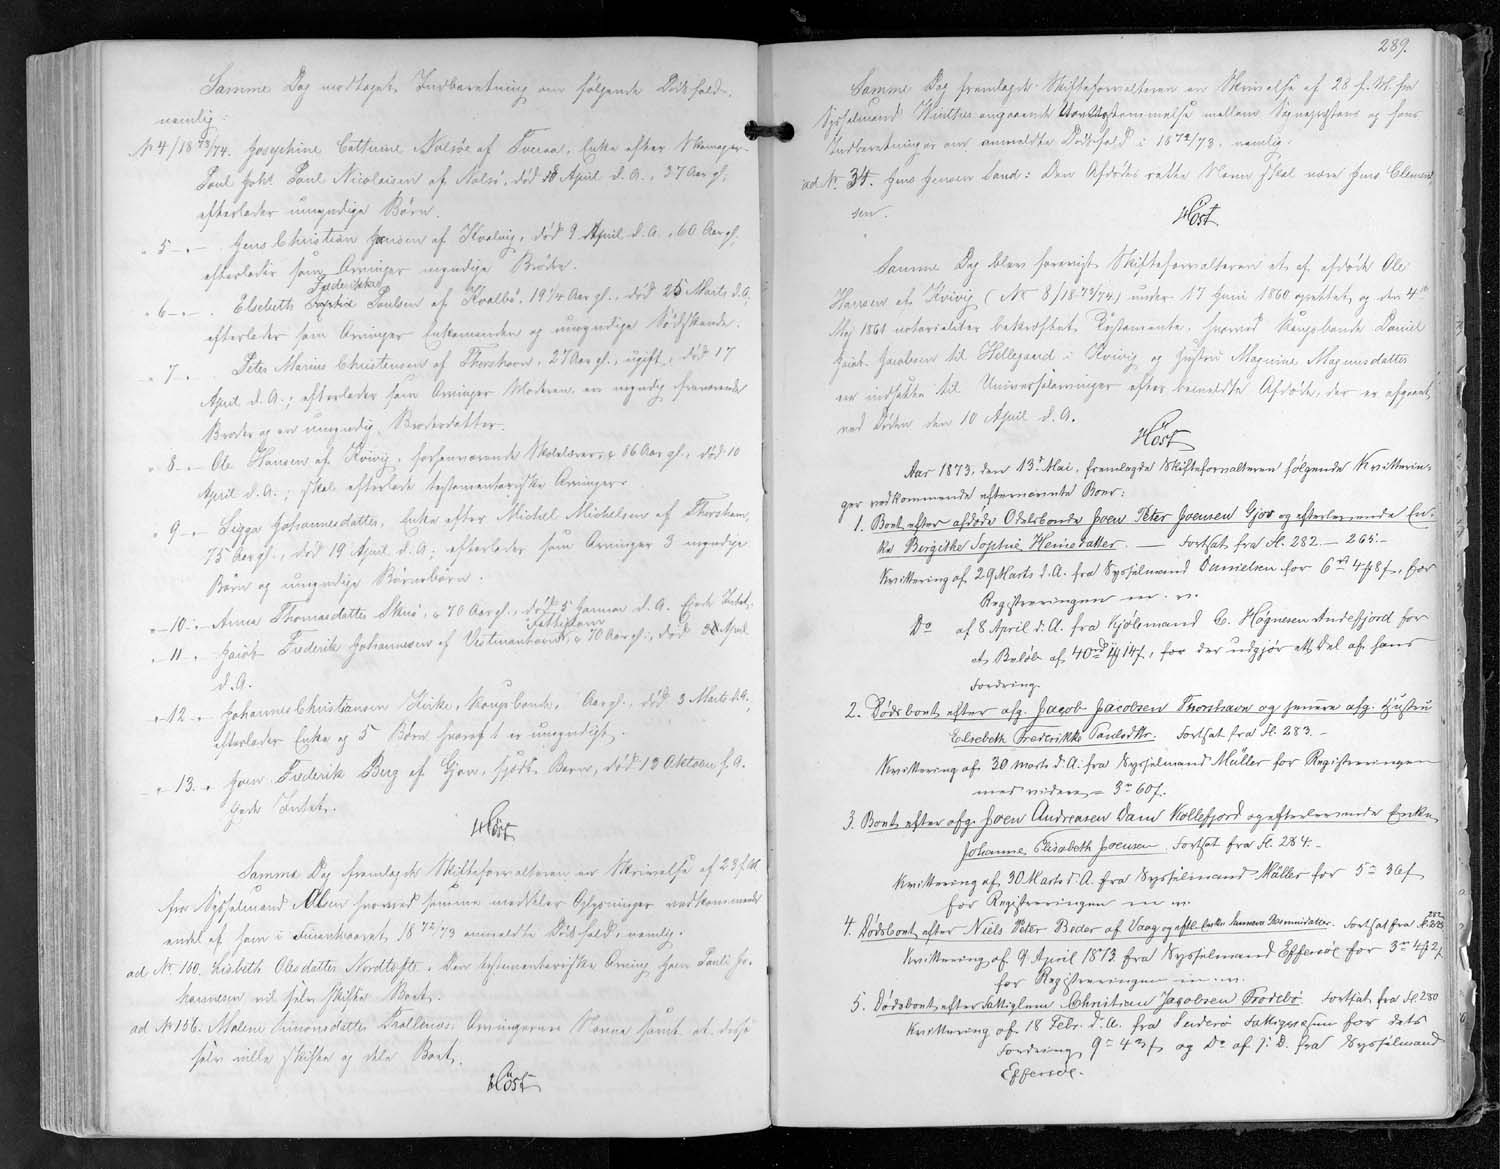 Samme Dag modtaget Indberetning om følgende Dødsfald,
nemlig:
No 4/1873/74. Josephine Cathrine Nolsøe af Tveraa, Enke efter Skomager
Poul Poul Nicolaisen af Nolsø, død 28 April d. A., 37 Aar gl.,
efterlader umyndige Børn.
" 5 – " – Jens Christian Jensen af Kvalvig, død 9 April d. A., 60 Aar gl.;
efterlader som Arvinger myndige Brødre.
Frederikke
" 6 – " – Elsebeth Sophie Poulsen af Kvalbø, 19 1/4 Aar gl., død 25 Marts d. A.,
efterlader som Arvinger Enkemanden og umyndige Sødskende.
" 7 – " – Peter Marius Christensen af Thorshavn, 27 Aar gl., ugift, død 17
April d. A.; efterlader som Arvinger Moderen, en myndig fraværende
Broder og en umyndig Broderdatter.
" 8 – " – Ole Hansen af Kvivig, forhenværende Skolelærer, 86 Aar gl., død 10
April d. A.; skal efterlade testamentariske Arvinger.
" 9 – " Sigga Johannesdatter, Enke efter Michel Michelsen af Thorshavn,
75 Aar gl., død 19 April d. A.; efterlader som Arvinger 3 myndige
Børn og umyndige Børnebørn.
" – 10 – " – Anna Thomasdatter Skuø, 70 Aar gl., død 5 Januar d. A. Ejede Intet.
Fattiglem
" – 11 – " Jacob Frederik Johannesen af Vestmanhavn, 70 Aar gl., død April
d. A.
" – 12 – " Johannes Christiansen Kirke, Kongsbonde, Aar gl., død 3 Marts d. A.,
efterlader Enke og 5 Børn hvoraf 1 er umyndigt.
" – 13 – " Joen Frederik Berg af Gjov, spædt Barn, død 13 Oktober f. A.
Ejede Intet.
HCöst
Samme Dag fremlagde Skifteforvalteren en Skrivelse af 23 f. M.
fra Sysselmand Olsen hvorved samme meddeler Oplysninger vedkommende
endel af ham i Finantsaaret 1872/73 anmeldte Dødsfald, nemlig:
ad No 100. Lisbeth Olesdatter Nordtofte: Den testamentariske Arving Joen Pauli Jo-
hannesen vil selv skifte Boet.
ad No 156. Malene Simonsdatter Trøllenæs. Arvingernes Navne samt at disse
selv ville skifte og dele Boet.
HCöst
289.
Samme Dag fremlagde Skifteforvalteren en Skrivelse af 28 f. M. fra
Sysselmand Winther angaaende Uoverensstemmelse mellem Sognepræstens og hans
Indberetninger om anmeldte Dødsfald i 1872/73, nemlig:
ad No 34. Jens Jensen Sand: Den Afdødes rette Navn skal være Jens Clemend-
sen.
HCöst
Samme Dag blev forevist Skifteforvalteren et af afdøde Ole
Hansen af Kvivig (No 8/1873/74) under 17 Juni 1860 oprettet og den 4de
Maj 1861 notarialiter bekræftet Testamente, hvorved Kongsbonde Daniel
Jacob Jacobsen til Hellegaard i Kvivig og Hustru Magrine Magnusdatter
ere indsatte til Universalarvinger efter bemeldte Afdøde, der er afgaaet
ved Døden den 10 April d. A.
HCöst
Aar 1873, den 13de Mai, fremlagde Skifteforvalteren følgende Kvitterin-
ger vedkommende efternævnte Boer:
1. Boet efter afdøde Odelsbonde Joen Peter Joensen Gjov og efterlevende En-
ke Birgithe Sophie Heinesdatter. – Fortsat fra Fl. 282. – 265. –
Kvittering af 29 Marts d. A. fra Sysselmand Danielsen for 6 rd 4 ß 8 f, for
Registreringen m. v.
Do af 8 April d. A. fra Kjøbmand C. Høgnesen Andefjord for
et Beløb af 40 rd 1 ß 14 f, for der udgjør ett Del af hans
Fordring.
2. Dødsboet efter afg. Jacob Jacobsen Thorshavn og senere afg. Hustru
Elsebeth Frederikke Poulsdtr. Fortsat fra Fl. 283. –
Kvittering af 30 Marts d. A. fra Sysselmand Müller for Registreringen
med videre = 3 rd 60 f.
3. Boet efter afg. Joen Andreasen Dam Kollefjord og efterlevende Enke
Johanne Elisabeth Joensen. Fortsat fra Fl. 284. –
Kvittering af 30 Marts d. A. fra Sysselmand Müller for 5 rd 36 f
for Registreringen m. v.
4. Dødsboet efter Niels Peter Beder af Vaag og eftl. Enke Sunneva Fortsat fra Fl. 282
Kvittering af 9 April 1873 fra Sysselmand Effersøe for 3 rd 4 ß 2 f
for Registreringen m. m.
5. Dødsboet efter Fattiglem Christian Jacobsen Frodebø Fortsat fra Fl. 280
Kvittering af 18 Febr. d. A. fra Suderø Fattigvæsen for dets
Fordring 9 rd 4 ß f og Do af s. D. fra Sysselmand
Effersøe.